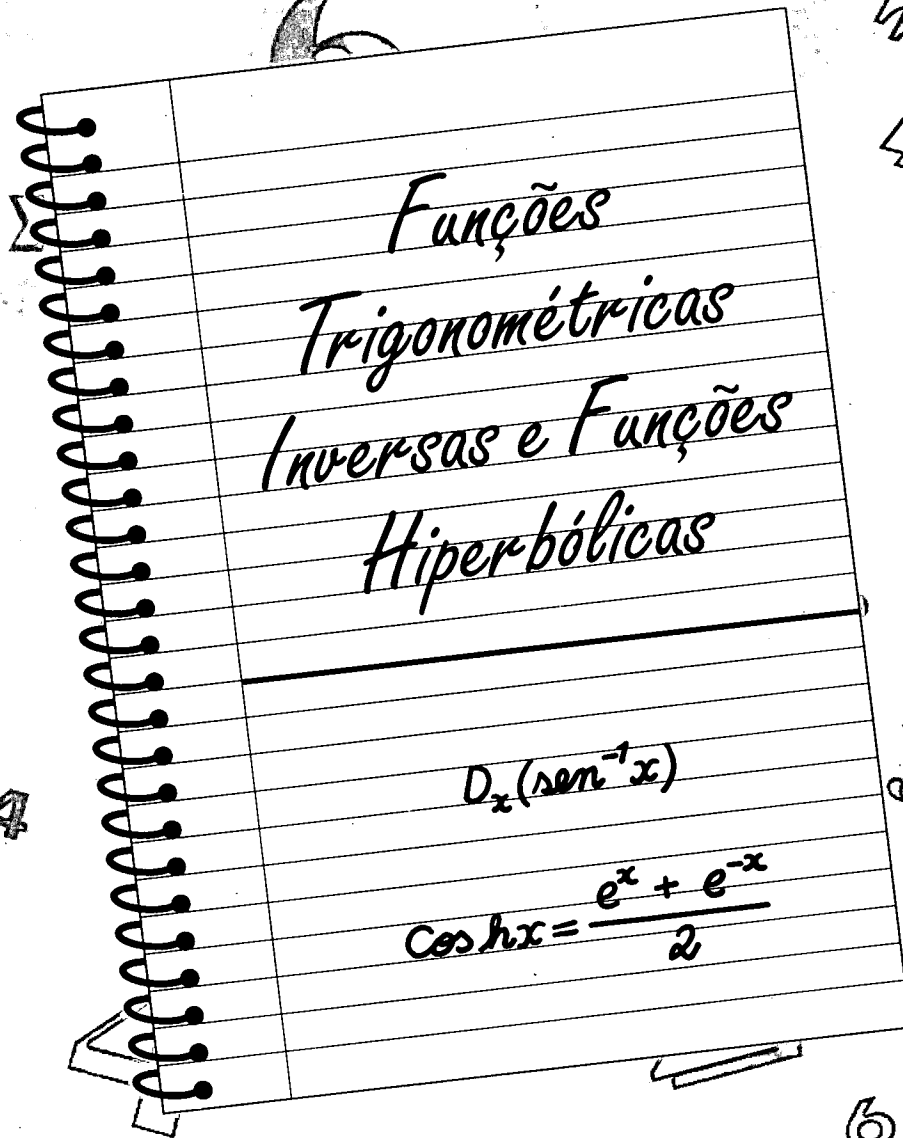 Funções
Trigonométricas
Inversas e Funções
Hiperbólicas
Dₓ(sen⁻¹x)
cos hx = (eˣ + e⁻ˣ)/2